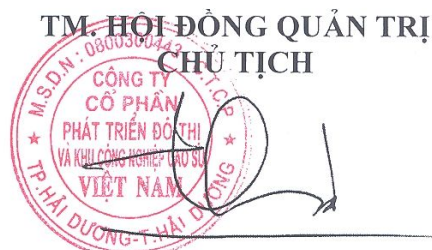 TM. HỘI ĐỒNG QUẢN TRỊ
CHỦ TỊCH
M.S.D.N: 0800300443 C.T.C.P
CÔNG TY
CỔ PHẦN
PHÁT TRIỂN ĐÔ THỊ
VÀ KHU CÔNG NGHIỆP CAO SU
VIỆT NAM
TP.HẢI DƯƠNG-T.HẢI DƯƠNG